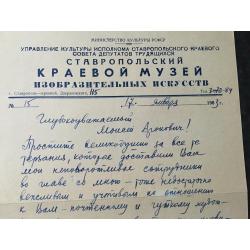 МИНИСТЕРСТВО КУЛЬТУРЫ РСФСР
УПРАВЛЕНИЕ КУЛЬТУРЫ ИСПОЛКОМА СТАВРОПОЛЬСКОГО КРАЕВОГО
СОВЕТА ДЕПУТАТОВ ТРУДЯЩИХСЯ
СТАВРОПОЛЬСКИЙ
КРАЕВОЙ МУЗЕЙ
ИЗОБРАЗИТЕЛЬНЫХ ИСКУССТВ
г. Ставрополь-краевой, Дзержинского, 115
№ 15 17 января
Глубокоуважаемый
Моисей Аронович!
Простите великодушно за все
терзания, которые доставили Вам
мои неповоротливые сотрудники
во главе с мною - тоже недостаточно
вежливым и учтивым по отношению
к Вам - почтенному и чуткому